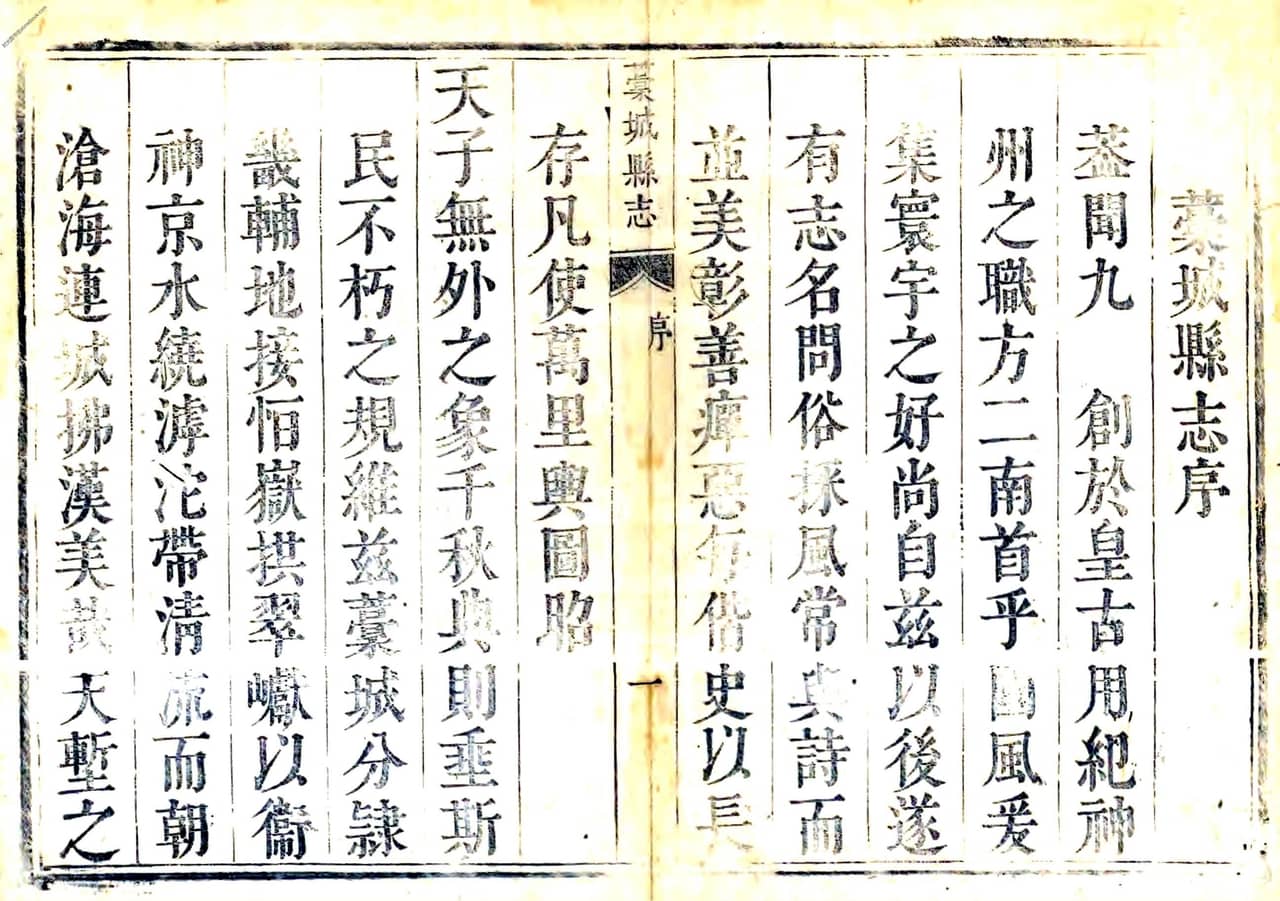 藁城縣志序
葢聞九 創於皇古用紀神
州之職方二南首乎國風爰
集寰宇之好尚自兹以後遂
有志名問俗採風常與詩而
並美彰善癉惡每偕史以長
藁城縣志 序 一
存凡使萬里輿圖昭
天子無外之象千秋典則垂斯
民不朽之規維兹藁城分隷
畿輔地接恒嶽拱翠巘以衞
神京水繞滹沱帶清流而朝
滄海連城拂漢美 天塹之